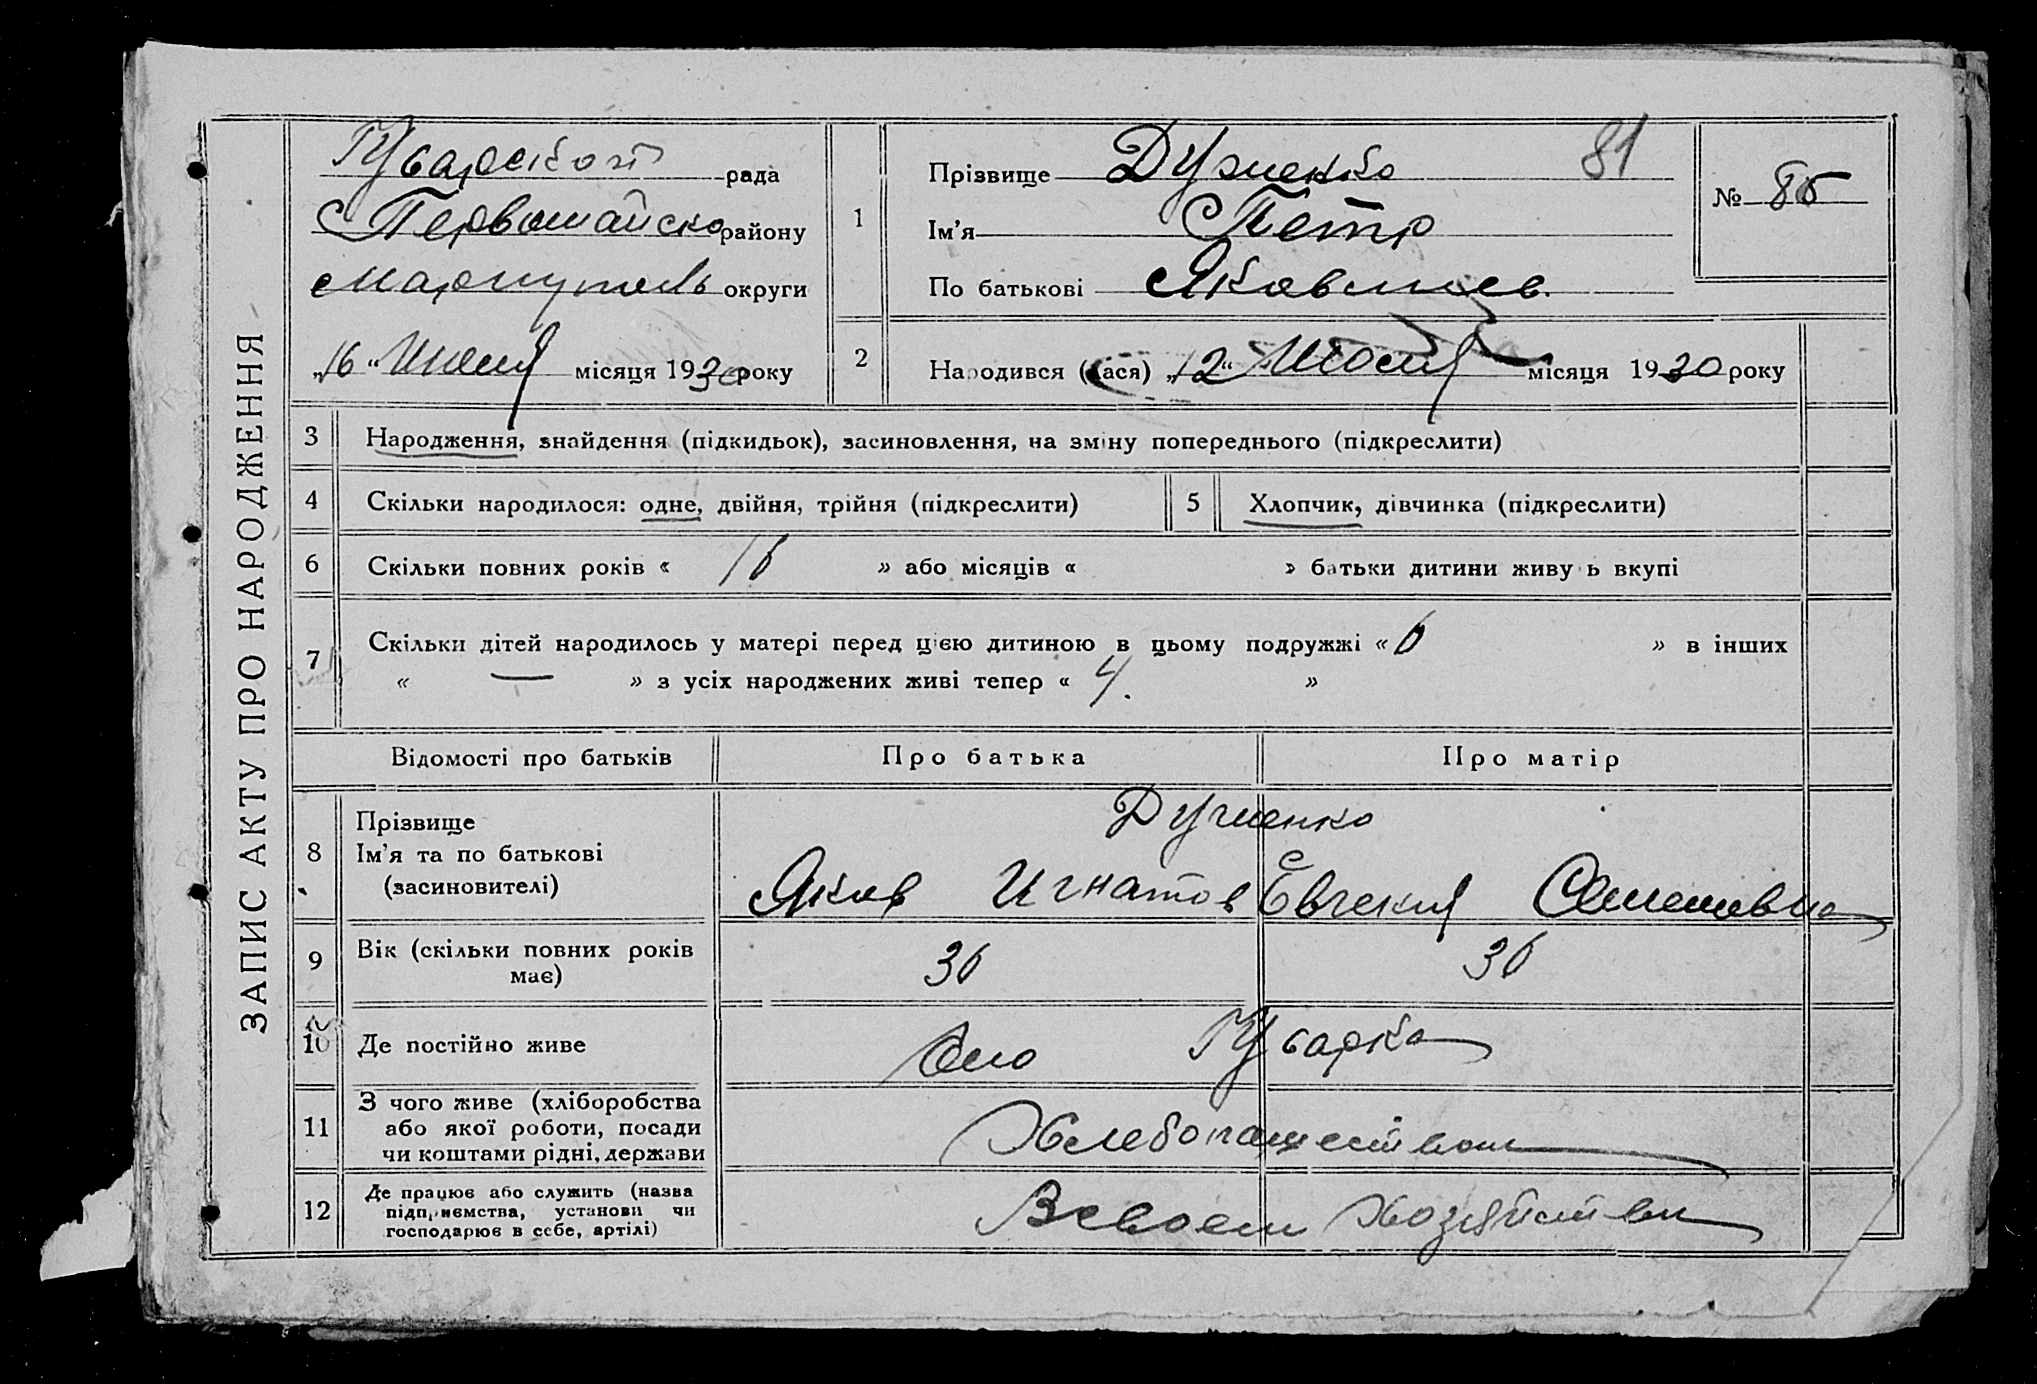 ЗАПИС АКТУ ПРО НАРОДЖЕННЯ
рада
Первомайско району
Мариуполь округи
„16“ Июля місяця 1930 року
1
Прізвище 81
Ім'я Петр
По батькові Яковлев.
№ 85
2
Народився (лася) „12“ Июля місяця 1930 року
3 Народження, знайдення (підкидьок), засиновлення, на зміну попереднього (підкреслити)
4 Скільки народилося: одне, двійня, трійня (підкреслити) 5 Хлопчик, дівчинка (підкреслити)
6 Скільки повних років « 16 » або місяців « » батьки дитини живуть вкупі
7 Скільки дітей народилось у матері перед цією дитиною в цьому подружжі « 6 » в інших
« — » з усіх народжених живі тепер « 4. »
Відомості про батьків Про батька Про матір
8 Прізвище
Ім'я та по батькові
(засиновителі)
Яков Игнатов Евгения Семеновна
9 Вік (скільки повних років
має)
36 36
10 Де постійно живе
Село
11 З чого живе (хліборобства
або якої роботи, посади
чи коштами рідні, держави
Хлебопашеством
12 Де працює або служить (назва
підприємства, установи чи
господарює в себе, артілі)
В своем хозяйстве